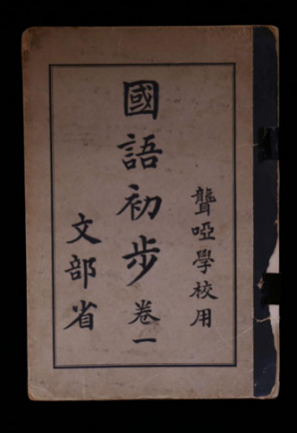 聾啞學校用
國語初步 卷一
文部省